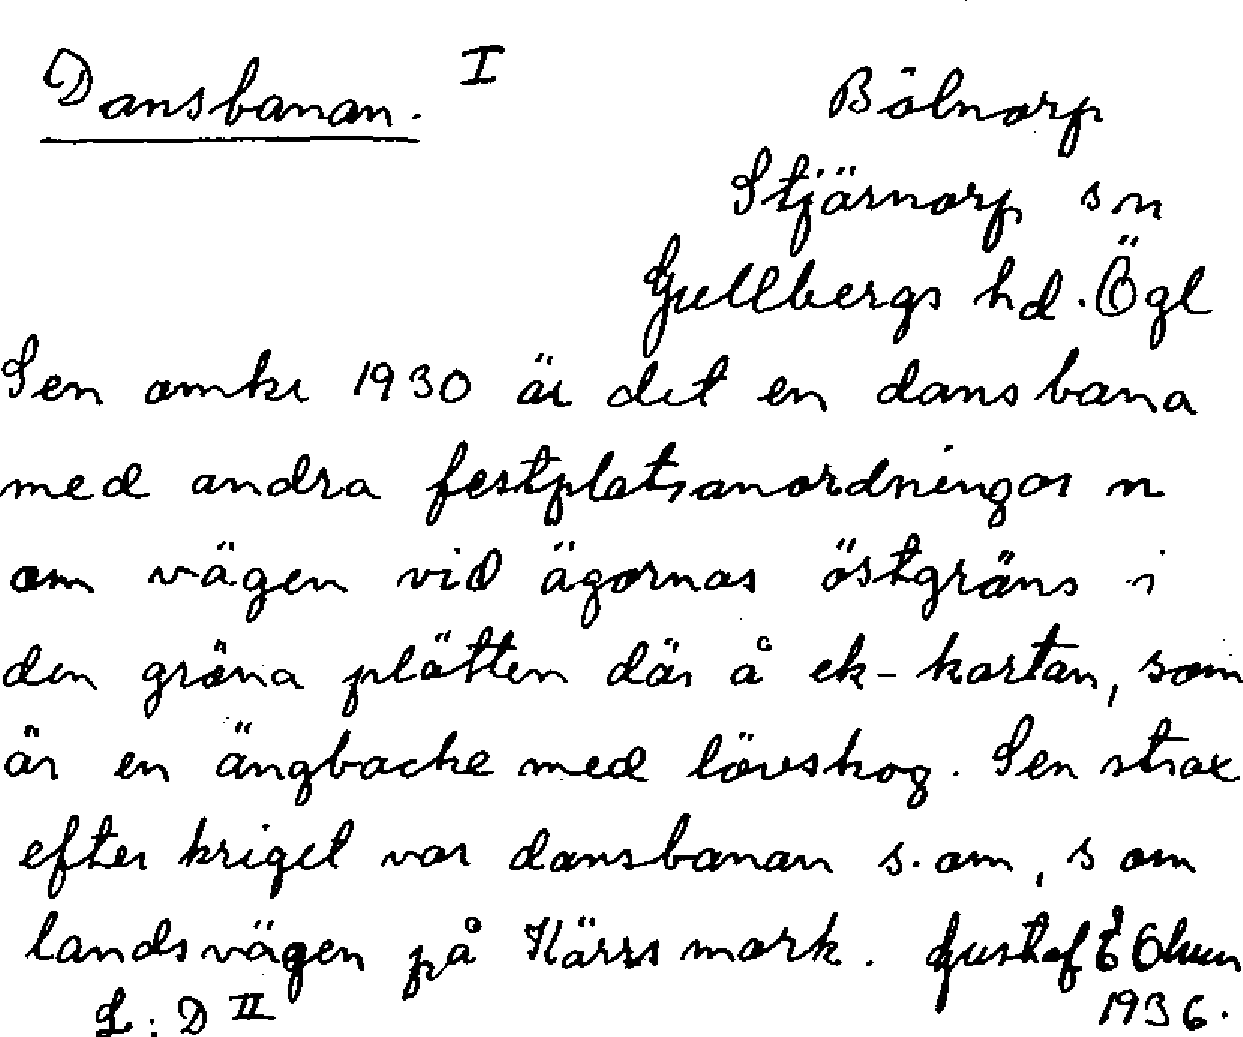 Dansbanan. I
Bölnorp
Stjärnorp sn
Gullbergs hd. Ögl
Sen omkr 1930 är det en dansbana
med andra festplatsanordningar n
om vägen vid ägornas östgräns i
den gröna plätten där å ek-kartan, som
är en ängbacke med lövskog. Sen strax
efter kriget var dansbanan s. om, s om
landsvägen på Kärrsmark. Gustaf
1936.
L: D II